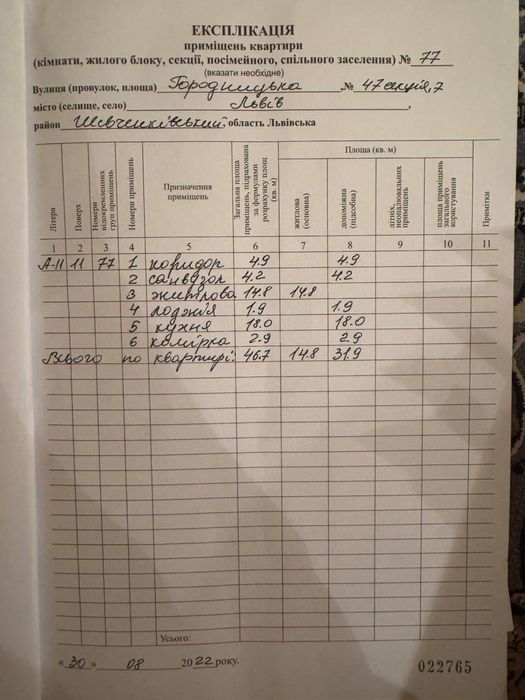 ЕКСПЛІКАЦІЯ
приміщень квартири
(кімнати, жилого блоку, секції, посімейного, спільного заселення) № 77
(вказати необхідне)
Вулиця (провулок, площа) Городницька № 47 секція, 2
місто (селище, село) Львів ,
район Шевченківський, область Львівська
Літера Поверх Номери відокремлених груп приміщень Номери приміщень Призначення приміщень Загальна площа приміщень, підрахована за формулами розрахунку площ (кв. м) Площа (кв. м) житлова (основна) допоміжна (підсобна) літніх, неопалювальних приміщень площа приміщень загального користування Примітки
1 2 3 4 5 6 7 8 9 10 11
А-11 11 77 1 коридор 4.9 4.9
2 санвузол 4.2 4.2
3 житлова 14.8 14.8
4 лоджія 1.9 1.9
5 кухня 18.0 18.0
6 комірка 2.9 2.9
Всього по квартирі: 46.7 14.8 31.9
Усього:
« 30 » 08 2022 року.
022765